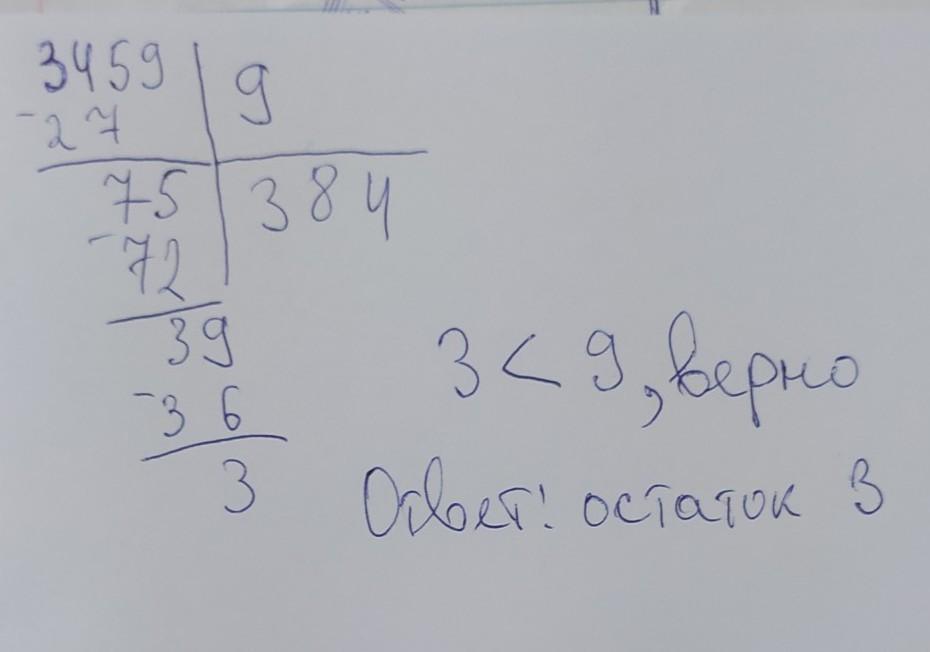 3459 9
- 27
75 384
- 72
39
- 36
3
3 < 9, верно
Ответ: остаток 3